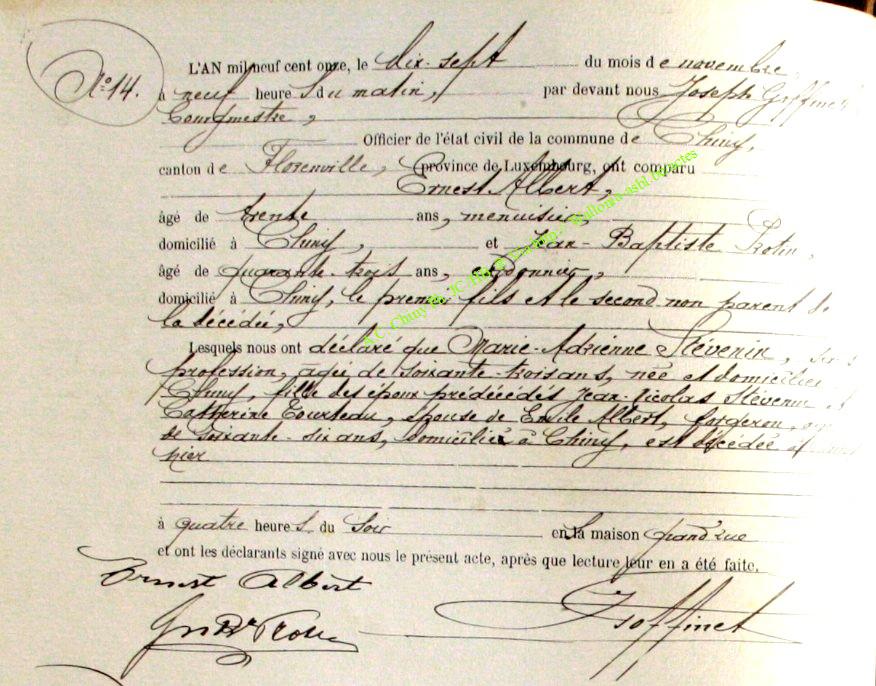 N° 14.
L'AN mil neuf cent onze, le dix-sept du mois de novembre
à neuf heures du matin, par devant nous Joseph Goffinet
bourgmestre,
Officier de l'état civil de la commune de Chiny,
canton de Florenville, province de Luxembourg, ont comparu
Ernest Albert,
âgé de trente ans, menuisier,
domicilié à Chiny, et Jean-Baptiste Trotin,
âgé de quarante-trois ans, cordonnier,
domicilié à Chiny, le premier fils et le second non parent de
la décédée,
Lesquels nous ont déclaré que Marie-Adrienne Stévenin, sans
profession, agée de soixante-trois ans, née et domiciliée
Chiny, fille des époux prédécédés Jean-Nicolas Stévenin et
Catherine Courteau, épouse de Emile Albert, forgeron,
de soixante-six ans, domicilié à Chiny, est décédée
hier
à quatre heures du soir en la maison grand'rue
et ont les déclarants signé avec nous le présent acte, après que lecture leur en a été faite.
Ernest Albert
Goffinet